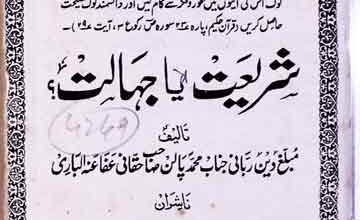 لوگ اس کی آیتوں میں غور و فکر سے کام لیں اور دانشمند لوگ نصیحت
حاصل کریں (قرآن حکیم، پارہ ۲۳، سورہ ص رکوع ۳، آیت ۲۹)
شریعت یا جہالت؟
تالیف
مبلغ دین ربانی جناب محمد پالن صاحب حقانی عفا عنہ الباری
ناشران